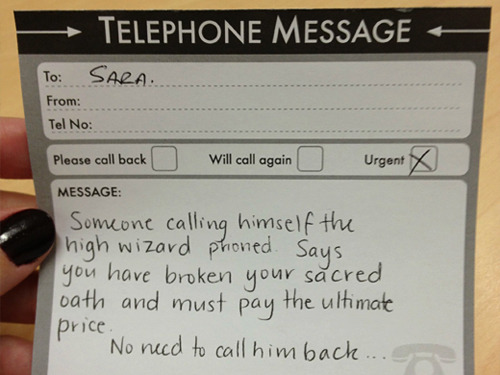 TELEPHONE MESSAGE
To: SARA.
From:
Tel No:
Please call back Will call again Urgent X
MESSAGE:
Someone calling himself the
high wizard phoned. Says
you have broken your sacred
oath and must pay the ultimate
price.
No need to call him back...